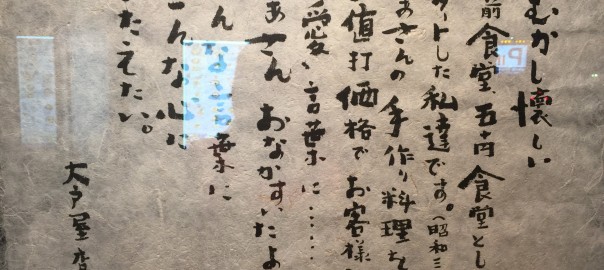 むかし懐しい
前食堂、五十円食堂とし
ートした私達です。(昭和三
あさんの手作り料理を
値打価格でお客様
愛い言葉に……
あさん おなかすいたよ
んな言葉に
こんな心に
たえたい。
大戸屋